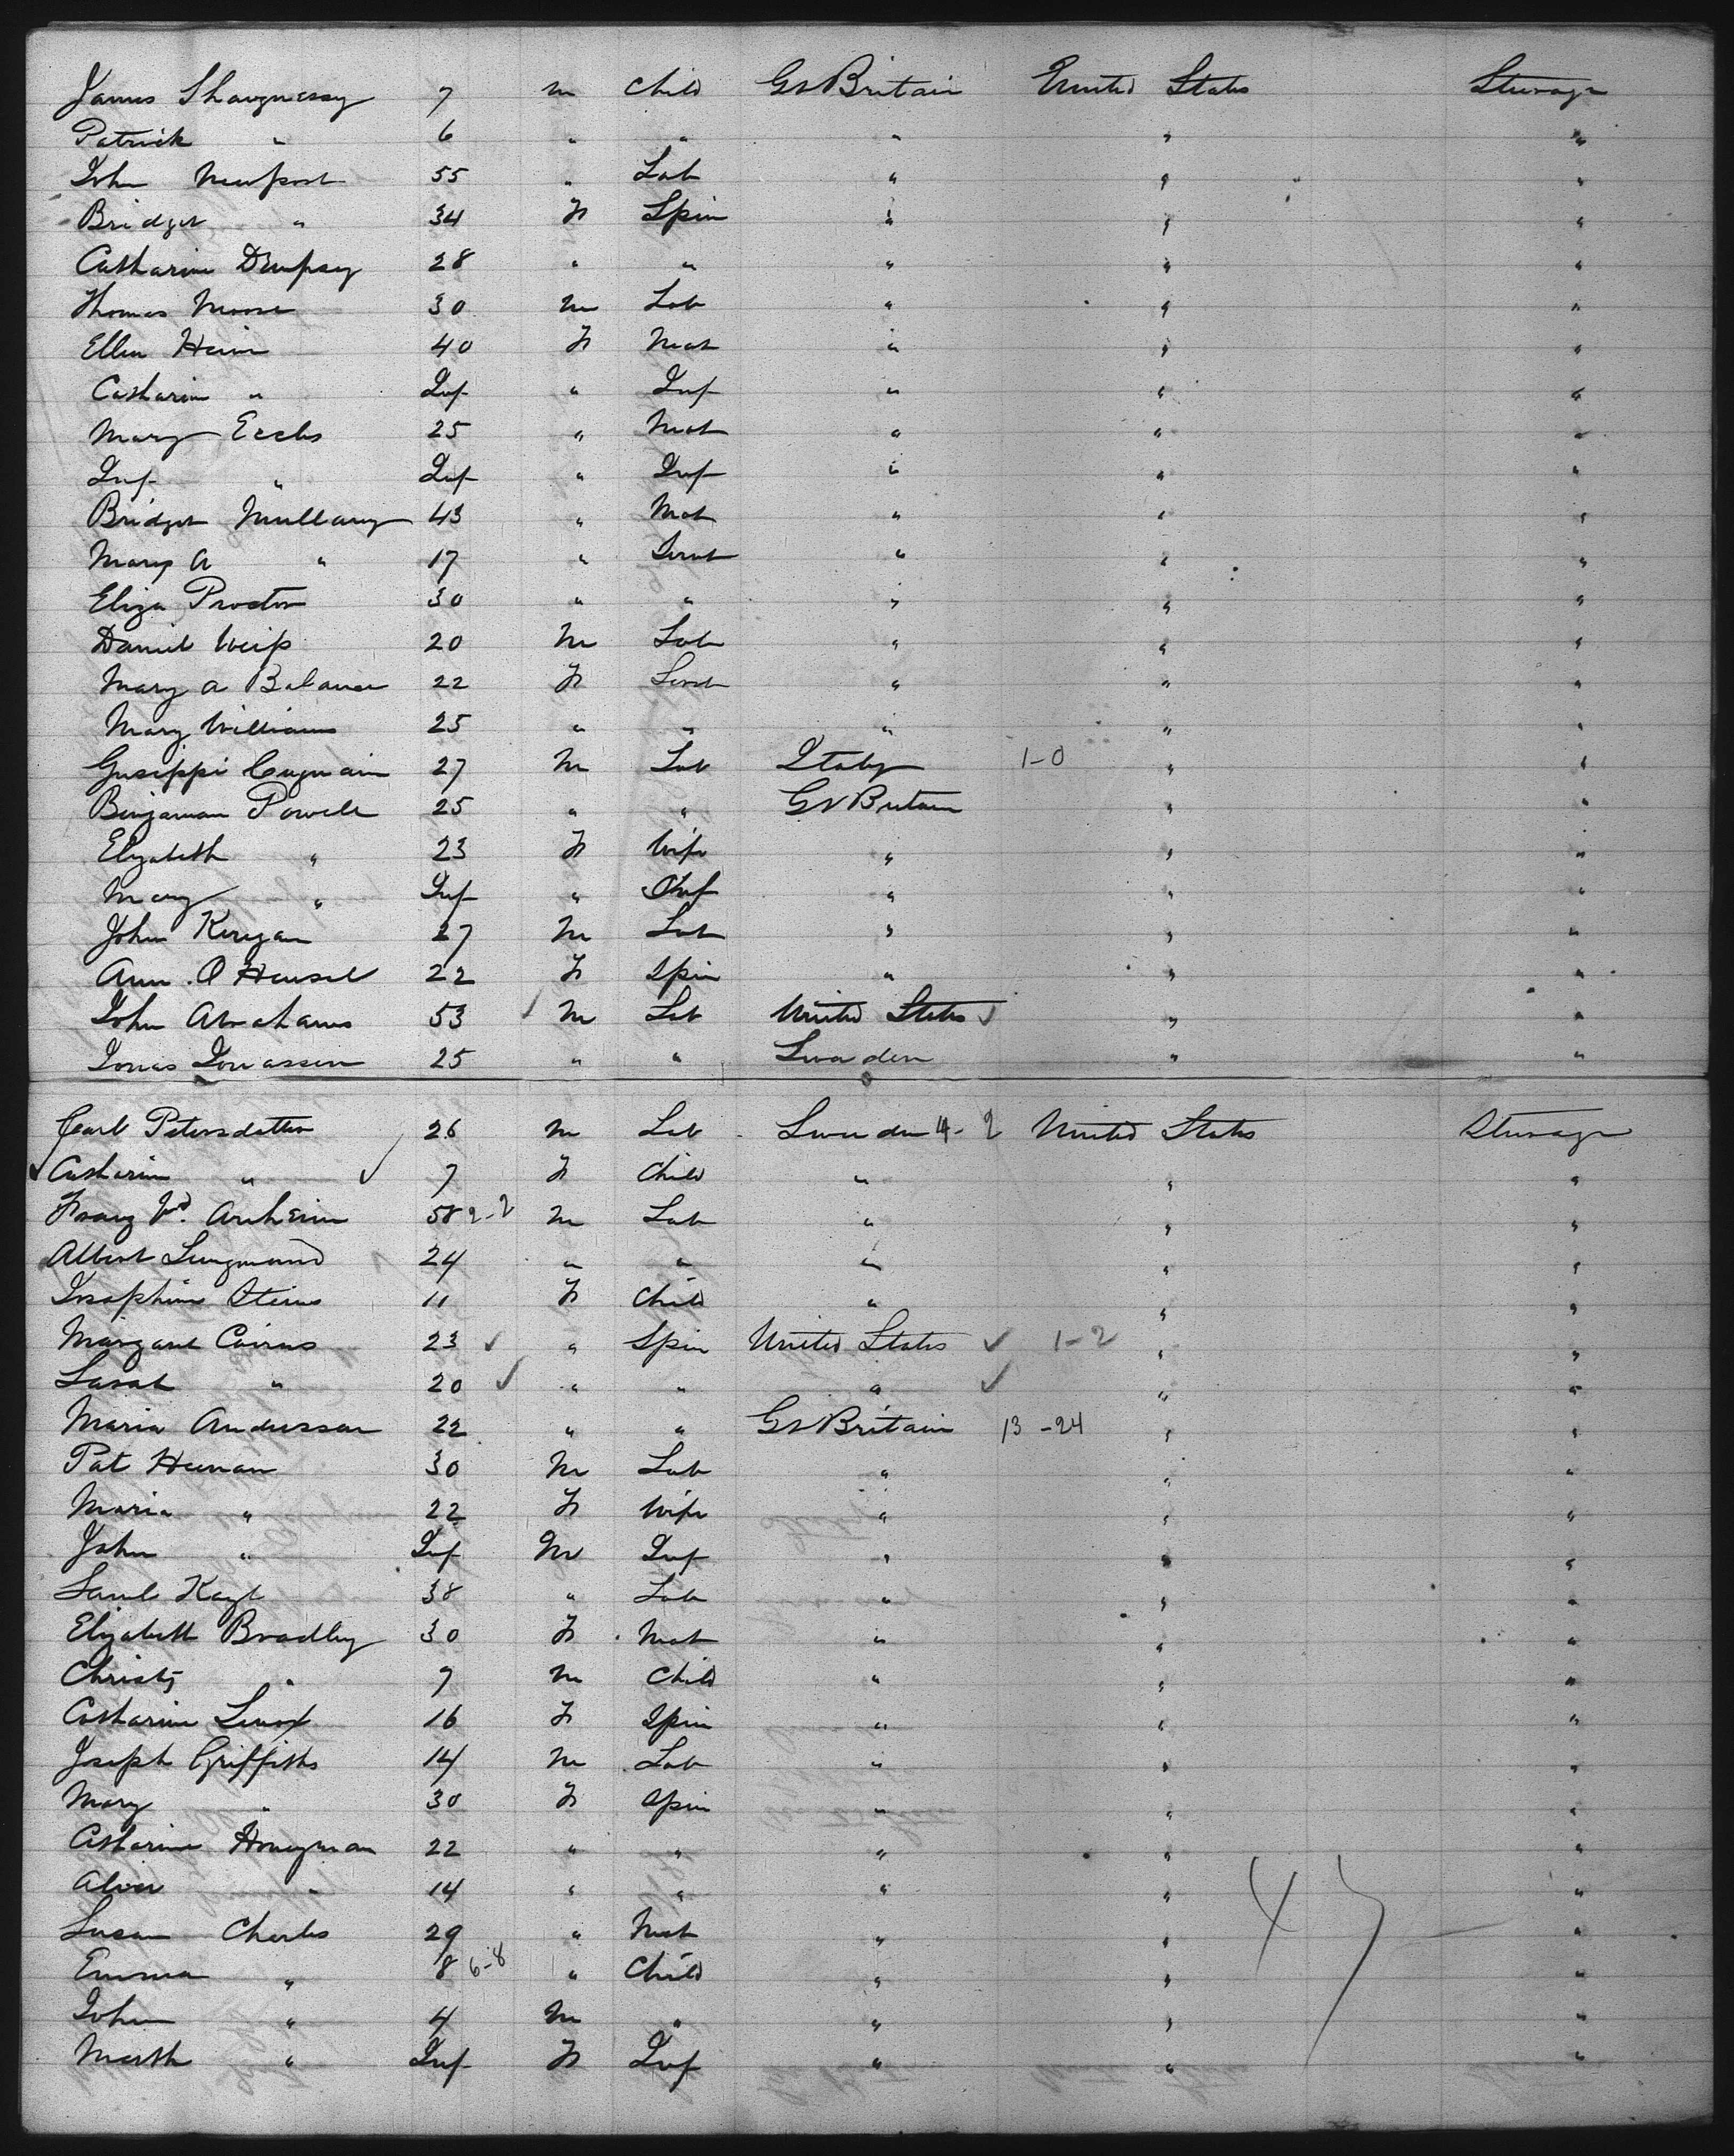 James Shaugnessy 7 m Child Gt Britain United States Steerage
Patrick " 6 " " " " "
John Newport 55 " Lab " " "
Bridget " 34 F Spin " " "
Catharine Dempsey 28 " " " " "
Thomas Moore 30 m Lab " " "
Ellen Hein 40 F Mat " " "
Catharine " Inf " Inf " " "
Mary Eccles 25 " Mat " " "
Inf " Inf " Inf " " "
Bridget Mullany 43 " Mat " " "
Mary A " 17 " Servt " " "
Eliza Proctor 30 " " " " "
Daniel Weiss 20 M Lab " " "
Mary A Balance 22 F Servt " " "
Mary Williams 25 " " " " "
Guseppi 27 M Lab Italy 1-0 " "
Benjaman Powell 25 " " Gt Britain " "
Elizabeth " 23 F Wife " " "
Mary " Inf " Inf " " "
John Keregan 27 M Lab " " "
Ann O 22 F Spin " " "
John Abrahams 53 ✓ M Lab United States ✓ " "
Jonas Jonassen 25 " " Sweaden " "
Carl Petersdatter 26 m Lab Sweaden 4-2 United States Steerage
✓ Catharin " ✓ 7 F Child " " "
Franz 58 2-2 m Lab " " "
Albert Lungmand 24 " " " " "
Josephine Steins 11 F Child " " "
Margaret Cairns 23 ✓ " Spin United States ✓ 1-2 " "
Sarah " 20 ✓ " " " ✓ " "
Maria Anderssan 22 " " Gt Britain 13-24 " "
Pat Heenan 30 M Lab " " "
Maria " 22 F Wife " " "
John " Inf M Inf " " "
Saml 38 " Lab " " "
Elizabeth Bradley 30 F Mat " " "
Christy " 7 m Child " " "
Catharine Lenox 16 F Spin " " "
Joseph Griffiths 14 m Lab " " "
Mary " 30 F Spin " " "
Catharine Honeyman 22 " " " " "
Alice " 14 " " " " "
Susan Charles 29 " Mat " " "
47
Emma " 8 6-8 " Child " " "
John " 4 M " " " "
Marth " Inf F Inf " " "